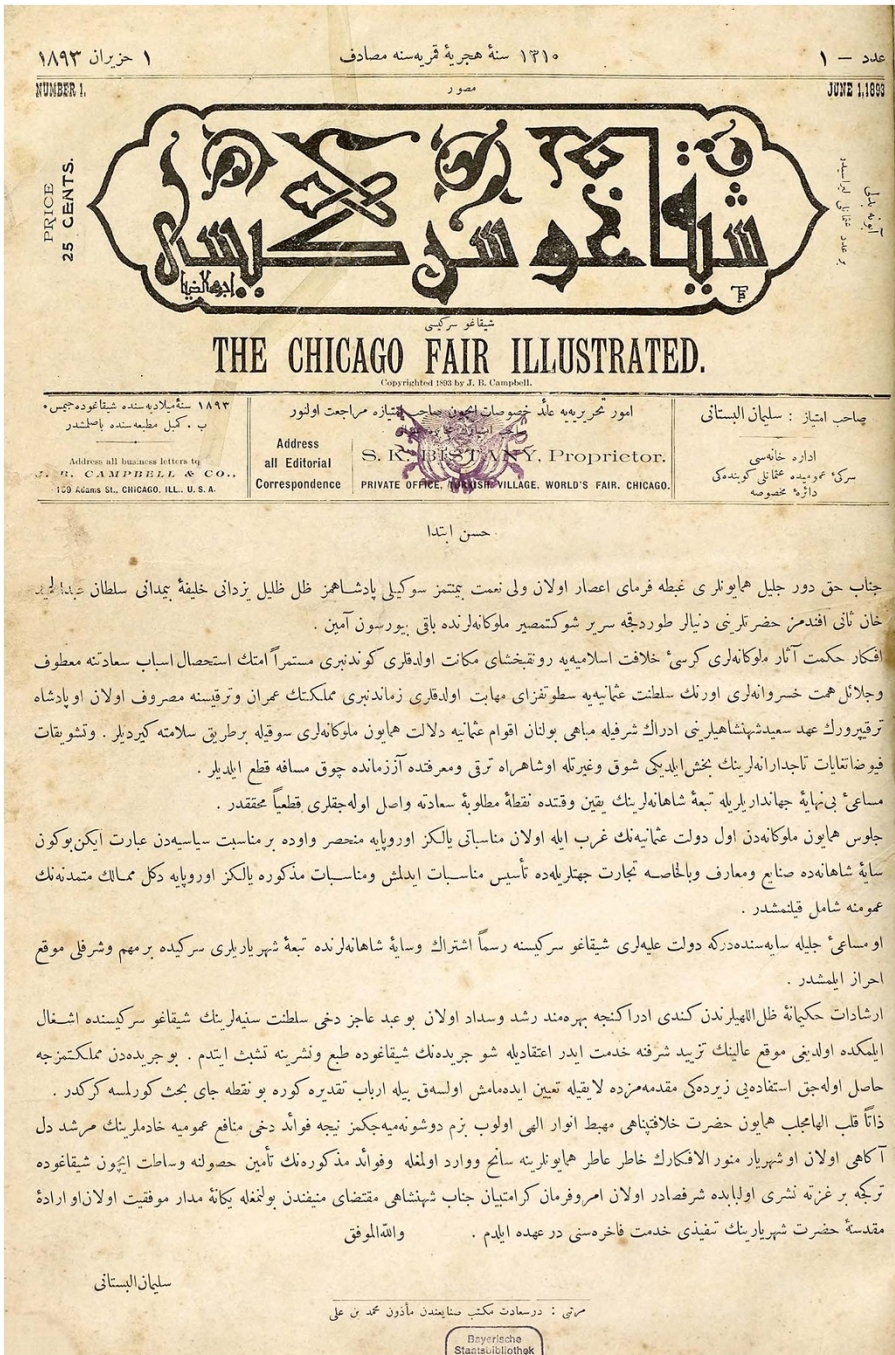 عدد — ١
١٣١٠ سنهٔ هجریهٔ قمریه‌سنه مصادف
١ حزیران ١٨٩٣
NUMBER 1.
مصور
JUNE 1, 1893
PRICE
25 CENTS.
آبونه بدلی
بر عدد عثمانلی لیراسیدر
شیقاغو سرکیسی
شیقاغو سرکیسی
THE CHICAGO FAIR ILLUSTRATED.
Copyrighted 1893 by J. B. Campbell.
صاحب امتیاز : سلیمان البستانی
اداره خانه‌سی
سرکیٔ عمومیده عثمانلی کوینده‌کی
دائرهٔ مخصوصه
امور تحریریه‌یه عائد خصوصات ایچون صاحب امتیازه مراجعت اولنور
Address
all Editorial
Correspondence
S. K. BISTANY, Proprietor.
PRIVATE OFFICE, TURKISH VILLAGE, WORLD'S FAIR, CHICAGO.
١٨٩٣ سنهٔ میلادیه‌سنده شیقاغوده جیمس
ب . کمبل مطبعه‌سنده باصلمشدر
Address all business letters to
J. B. CAMPBELL & CO.,
159 Adams St., CHICAGO, ILL., U. S. A.
حسن ابتدا
جناب حق دور جلیل همایونلری غبطه فرمای اعصار اولان ولی نعمت بیمنتمز سوکیلی پادشاهمز ظل ظلیل یزدانی خلیفهٔ بیمدانی سلطان عبدالحمید
خان ثانی افندمز حضرتلرینی دنیالر طوردقجه سریر شوکتمصیر ملوکانه‌لرنده باقی بیورسون آمین .
افکار حکمت آثار ملوکانه‌لری کرسیٔ خلافت اسلامیه‌یه رونقبخشای مکانت اولدقلری کوندنبری مستمراً امتك استحصال اسباب سعادتنه معطوف
وجلائل همت خسروانه‌لری اورنك سلطنت عثمانیه‌یه سطوتفزای مهابت اولدقلری زماندنبری مملکتك عمران وترقیسنه مصروف اولان او پادشاه
ترقیپرورك عهد سعید شهنشاهیلرینی ادراك شرفیله مباهی بولنان اقوام عثمانیه دلالت همایون ملوکانه‌لری سوقیله بر طریق سلامته کیردیلر . وتشویقات
فیوضاتغایات تاجدارانه‌لرینك بخش ایلدیکی شوق وغیرتله او شاهراه ترقی ومعرفتده آز زمانده چوق مسافه قطع ایلدیلر .
مساعیٔ بی‌نهایهٔ جهانداریلریله تبعهٔ شاهانه‌لرینك یقین وقتده نقطهٔ مطلوبهٔ سعادته واصل اوله‌جقلری قطعیاً محققدر .
جلوس همایون ملوکانه‌دن اول دولت عثمانیه‌نك غرب ایله اولان مناسباتی یالکز اوروپایه منحصر واوده بر مناسبت سیاسیه‌دن عبارت ایکن بوکون
سایهٔ شاهانه‌ده صنایع ومعارف وبالخاصه تجارت جهتلریله‌ده تأسیس مناسبات ایدلمش ومناسبات مذکوره یالکز اوروپایه دکل ممالك متمدنه‌نك
عمومنه شامل قیلنمشدر .
او مساعیٔ جلیله سایه‌سنده‌درکه دولت علیه‌لری شیقاغو سرکیسنه رسماً اشتراك وسایهٔ شاهانه‌لرنده تبعهٔ شهریاریلری سرکیده بر مهم وشرفلی موقع
احراز ایلمشدر .
ارشادات حکیمانهٔ ظل‌اللهیلرندن کندی ادراکنجه بهره‌مند رشد وسداد اولان بو عبد عاجز دخی سلطنت سنیه‌لرینك شیقاغو سرکیسنده اشغال
ایلمکده اولدیغی موقع عالینك تزیید شرفنه خدمت ایدر اعتقادیله شو جریده‌نك شیقاغوده طبع ونشرینه تشبث ایتدم . بو جریده‌دن مملکتمزجه
حاصل اوله‌جق استفاده‌یی زیرده‌کی مقدمه‌مزده لایقیله تعیین ایده‌مامش اولسه‌ق بیله ارباب تقدیره کوره بو نقطه جای بحث کورلمسه کرکدر .
ذاتاً قلب الهامجلب همایون حضرت خلافتپناهی مهبط انوار الهی اولوب بزم دوشونه‌میه‌جکمز نیجه فوائد دخی منافع عمومیه خادملرینك مرشد دل
آکاهی اولان او شهریار منور الافکارك خاطر عاطر همایونلرینه سانح ووارد اولمغله وفوائد مذکوره‌نك تأمین حصولنه وساطت ایچون شیقاغوده
ترکجه بر غزته نشری اولبابده شرفصادر اولان امروفرمان کرامتبیان جناب شهنشاهی مقتضای منیفندن بولنمغله یکانهٔ مدار موفقیت اولان او ارادهٔ
مقدسهٔ حضرت شهریارینك تنفیذی خدمت فاخره‌سنی در عهده ایلدم . والله‌الموفق
سلیمان البستانی
مرتبی : درسعادت مکتب صنایعندن مأذون محمد بن علی
Bayerische
Staatsbibliothek